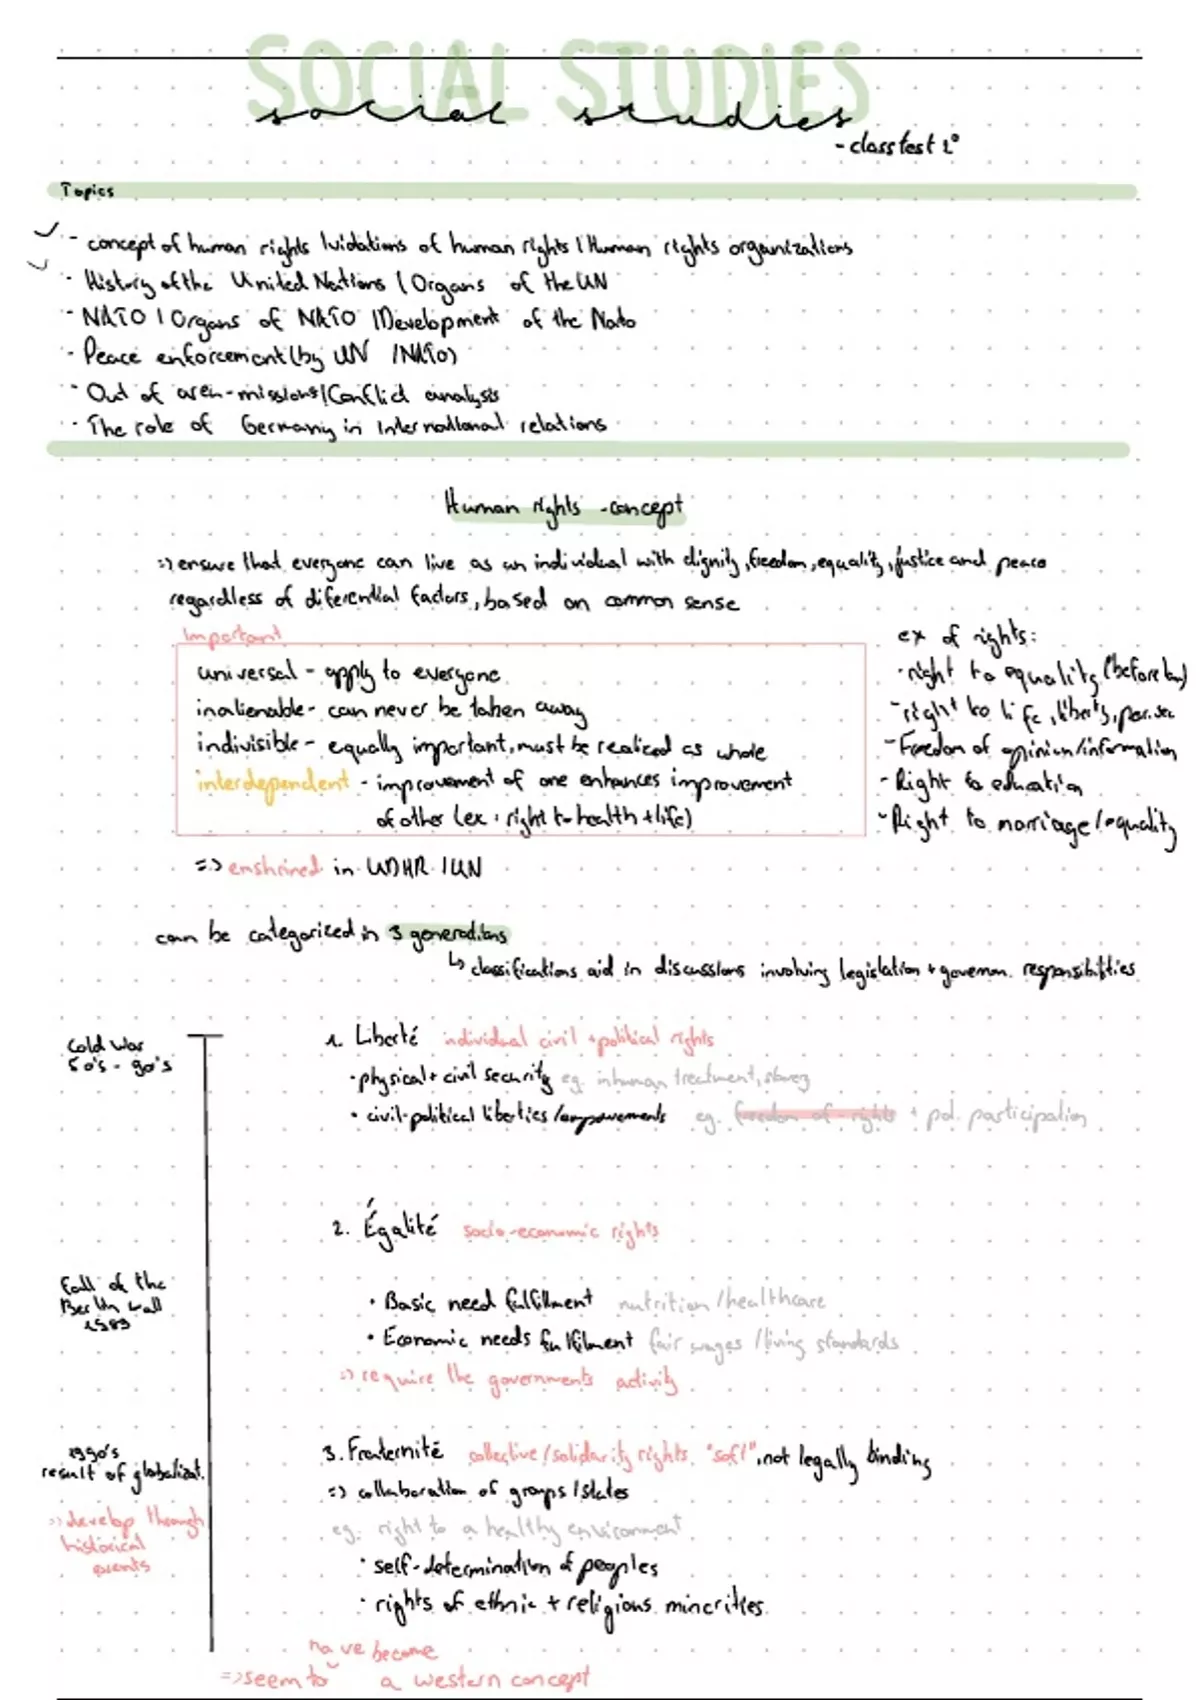 SOCIAL STUDIES
social studies
- classtest 2°
Topics
- concept of human rights / violations of human rights / Human rights organizations
- History of the United Nations / Organs of the UN
- NATO / Organs of NATO / Development of the Nato
- Peace enforcement (by UN / NATO)
- Out of area-missions / Conflict analysis
- The role of Germany in international relations
Human rights - concept
=> ensure that everyone can live as an individual with dignity, freedom, equality, justice and peace
regardless of diferential factors, based on common sense
Important
universal - apply to everyone
inalienable - can never be taken away
indivisible - equally important, must be realized as whole
interdependent - improvement of one enhances improvement
of other (ex: right to health + life)
ex of rights:
- right to equality (before law)
- right to life, liberty, per. sec
- Freedom of opinion/information
- Right to education
- Right to marriage/equality
=> enshrined in UDHR / UN
can be categorized in 3 generations
↳ classifications aid in discussions involving legislation + governm. responsibilities
Cold War
50's - 90's
1. Liberté individual civil + political rights
• physical + civil security eg. inhuman treatment, slavery
• civil-political liberties / empowements eg. freedom of rights + pol. participation
2. Égalité socio-economic rights
Fall of the
Berlin wall
1989
• Basic need fulfillment nutrition / healthcare
• Economic needs fulfilment fair wages / living standards
=> require the governments activity
1990's
result of globalizat.
=> develop through
historical
events
3. Fraternité collective / solidarity rights "soft", not legally binding
=> collaboration of groups / states
eg. right to a healthy environment
• self-determination of peoples
• rights of ethnic + religious minorities
have become
=> seem to a western concept